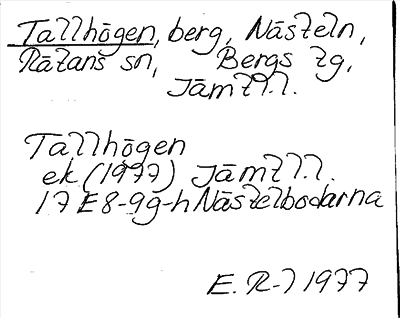 Tallhögen, berg, Nästeln,
Rätans sn, Bergs tg,
Jämtl.l.
Tallhögen
ek (1977) Jämtl.l.
17E8-9g-h Nästelbodarna
E. R-l 1977